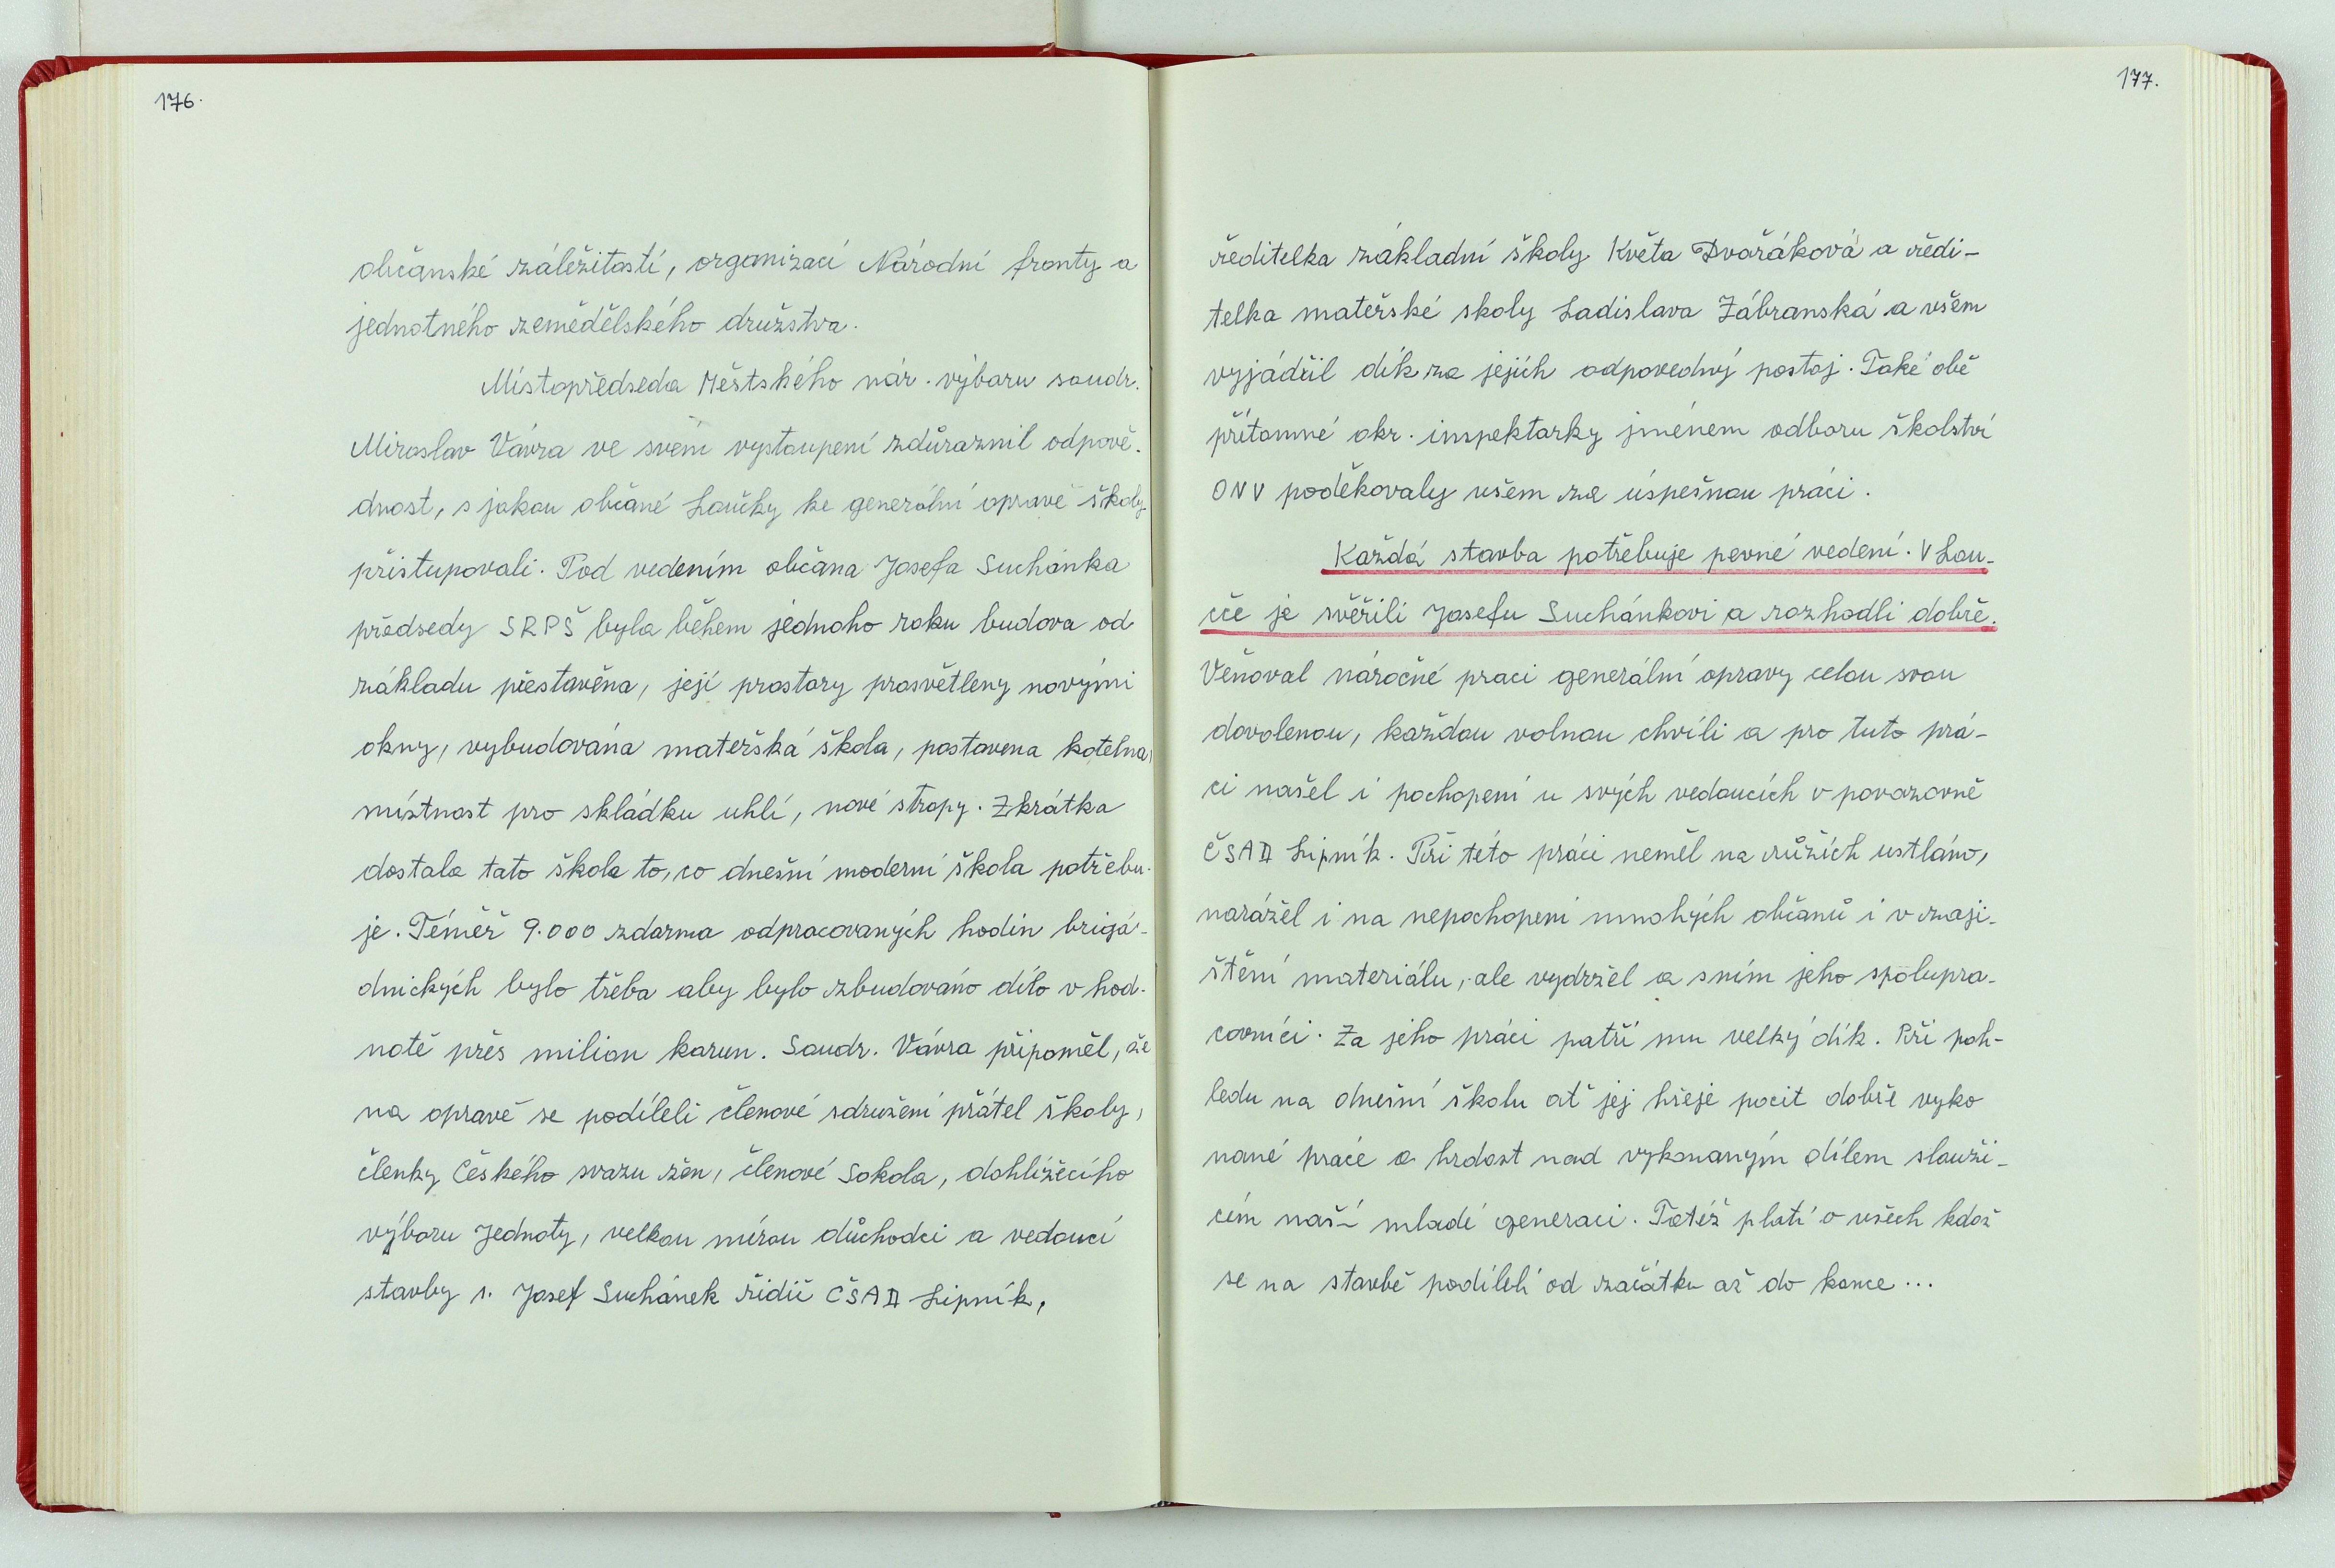 176.
občanské záležitosti, organizací Národní fronty a
jednotného zemědělského družstva.
Místopředseda Městského nár. výboru soudr.
Miroslav Vávra ve svém vystoupení zdůraznil odpově-
dnost, s jakou občané Loučky ke generální opravě školy
přistupovali. Pod vedením občana Josefa Suchánka
předsedy SRPŠ byla během jednoho roku budova od
základu přestavěna, její prostory prosvětleny novými
okny, vybudována mateřská škola, postavena kotelna,
místnost pro skládku uhlí, nové stropy. Zkrátka
dostala tato škola to, co dnešní moderní škola potřebu-
je. Téměř 9.000 zdarma odpracovaných hodin brigá-
dnických bylo třeba aby bylo zbudováno dílo v hod-
notě přes milion korun. Soudr. Vávra připoměl, že
na opravě se podíleli členové sdružení přátel školy,
členky Českého svazu žen, členové Sokola, dohlížecího
výboru Jednoty, velkou mírou důchodci a vedoucí
stavby s. Josef Suchánek řidič ČSAD Lipník,
177.
ředitelka základní školy Květa Dvořáková a ředi-
telka mateřské školy Ladislava Zábranská a všem
vyjádřil dík za jejich odpovedný postoj. Také obě
přítomné okr. inspektorky jménem odboru školství
ONV poděkovaly všem za úspešnou práci.
Každá stavba potřebuje pevné vedení. V Lou-
čce je svěřili Josefu Suchánkovi a rozhodli dobře.
Věnoval náročné praci generální opravy celou svou
dovolenou, každou volnou chvíli a pro tuto prá-
ci našel i pochopení u svých vedoucích v povozovně
ČSAD Lipník. Při této práci neměl na růžích ustláno,
narážel i na nepochopení mnohých občanů i v zaji-
štění materiálu, ale vydržel a sním jeho spolupra-
covníci. Za jeho práci patří mu velký dík. Při poh-
ledu na dnešní školu ať jej hřeje pocit dobře vyko
nané práce a hrdost nad vykonaným dílem slouží-
cím naší mladé generaci. Totéž platí o všech kdož
se na stavbě podíleli od začátku až do konce...